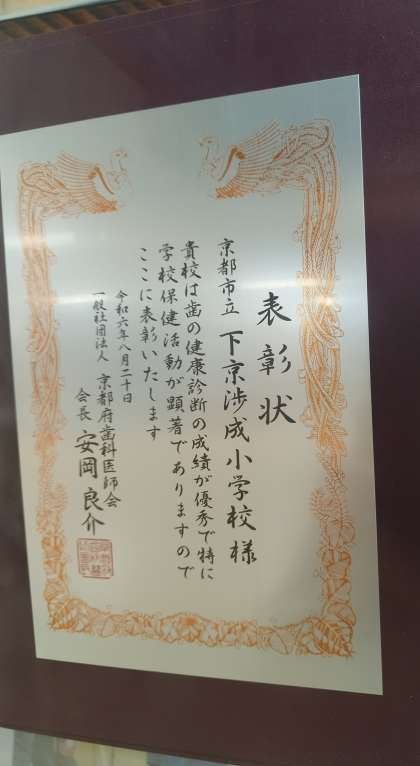 表彰状
京都市立 下京渉成小学校様
貴校は歯の健康診断の成績が優秀で特に
学校保健活動が顕著でありますので
ここに表彰いたします
令和六年八月二十日
一般社団法人 京都府歯科医師会
会長 安岡良介